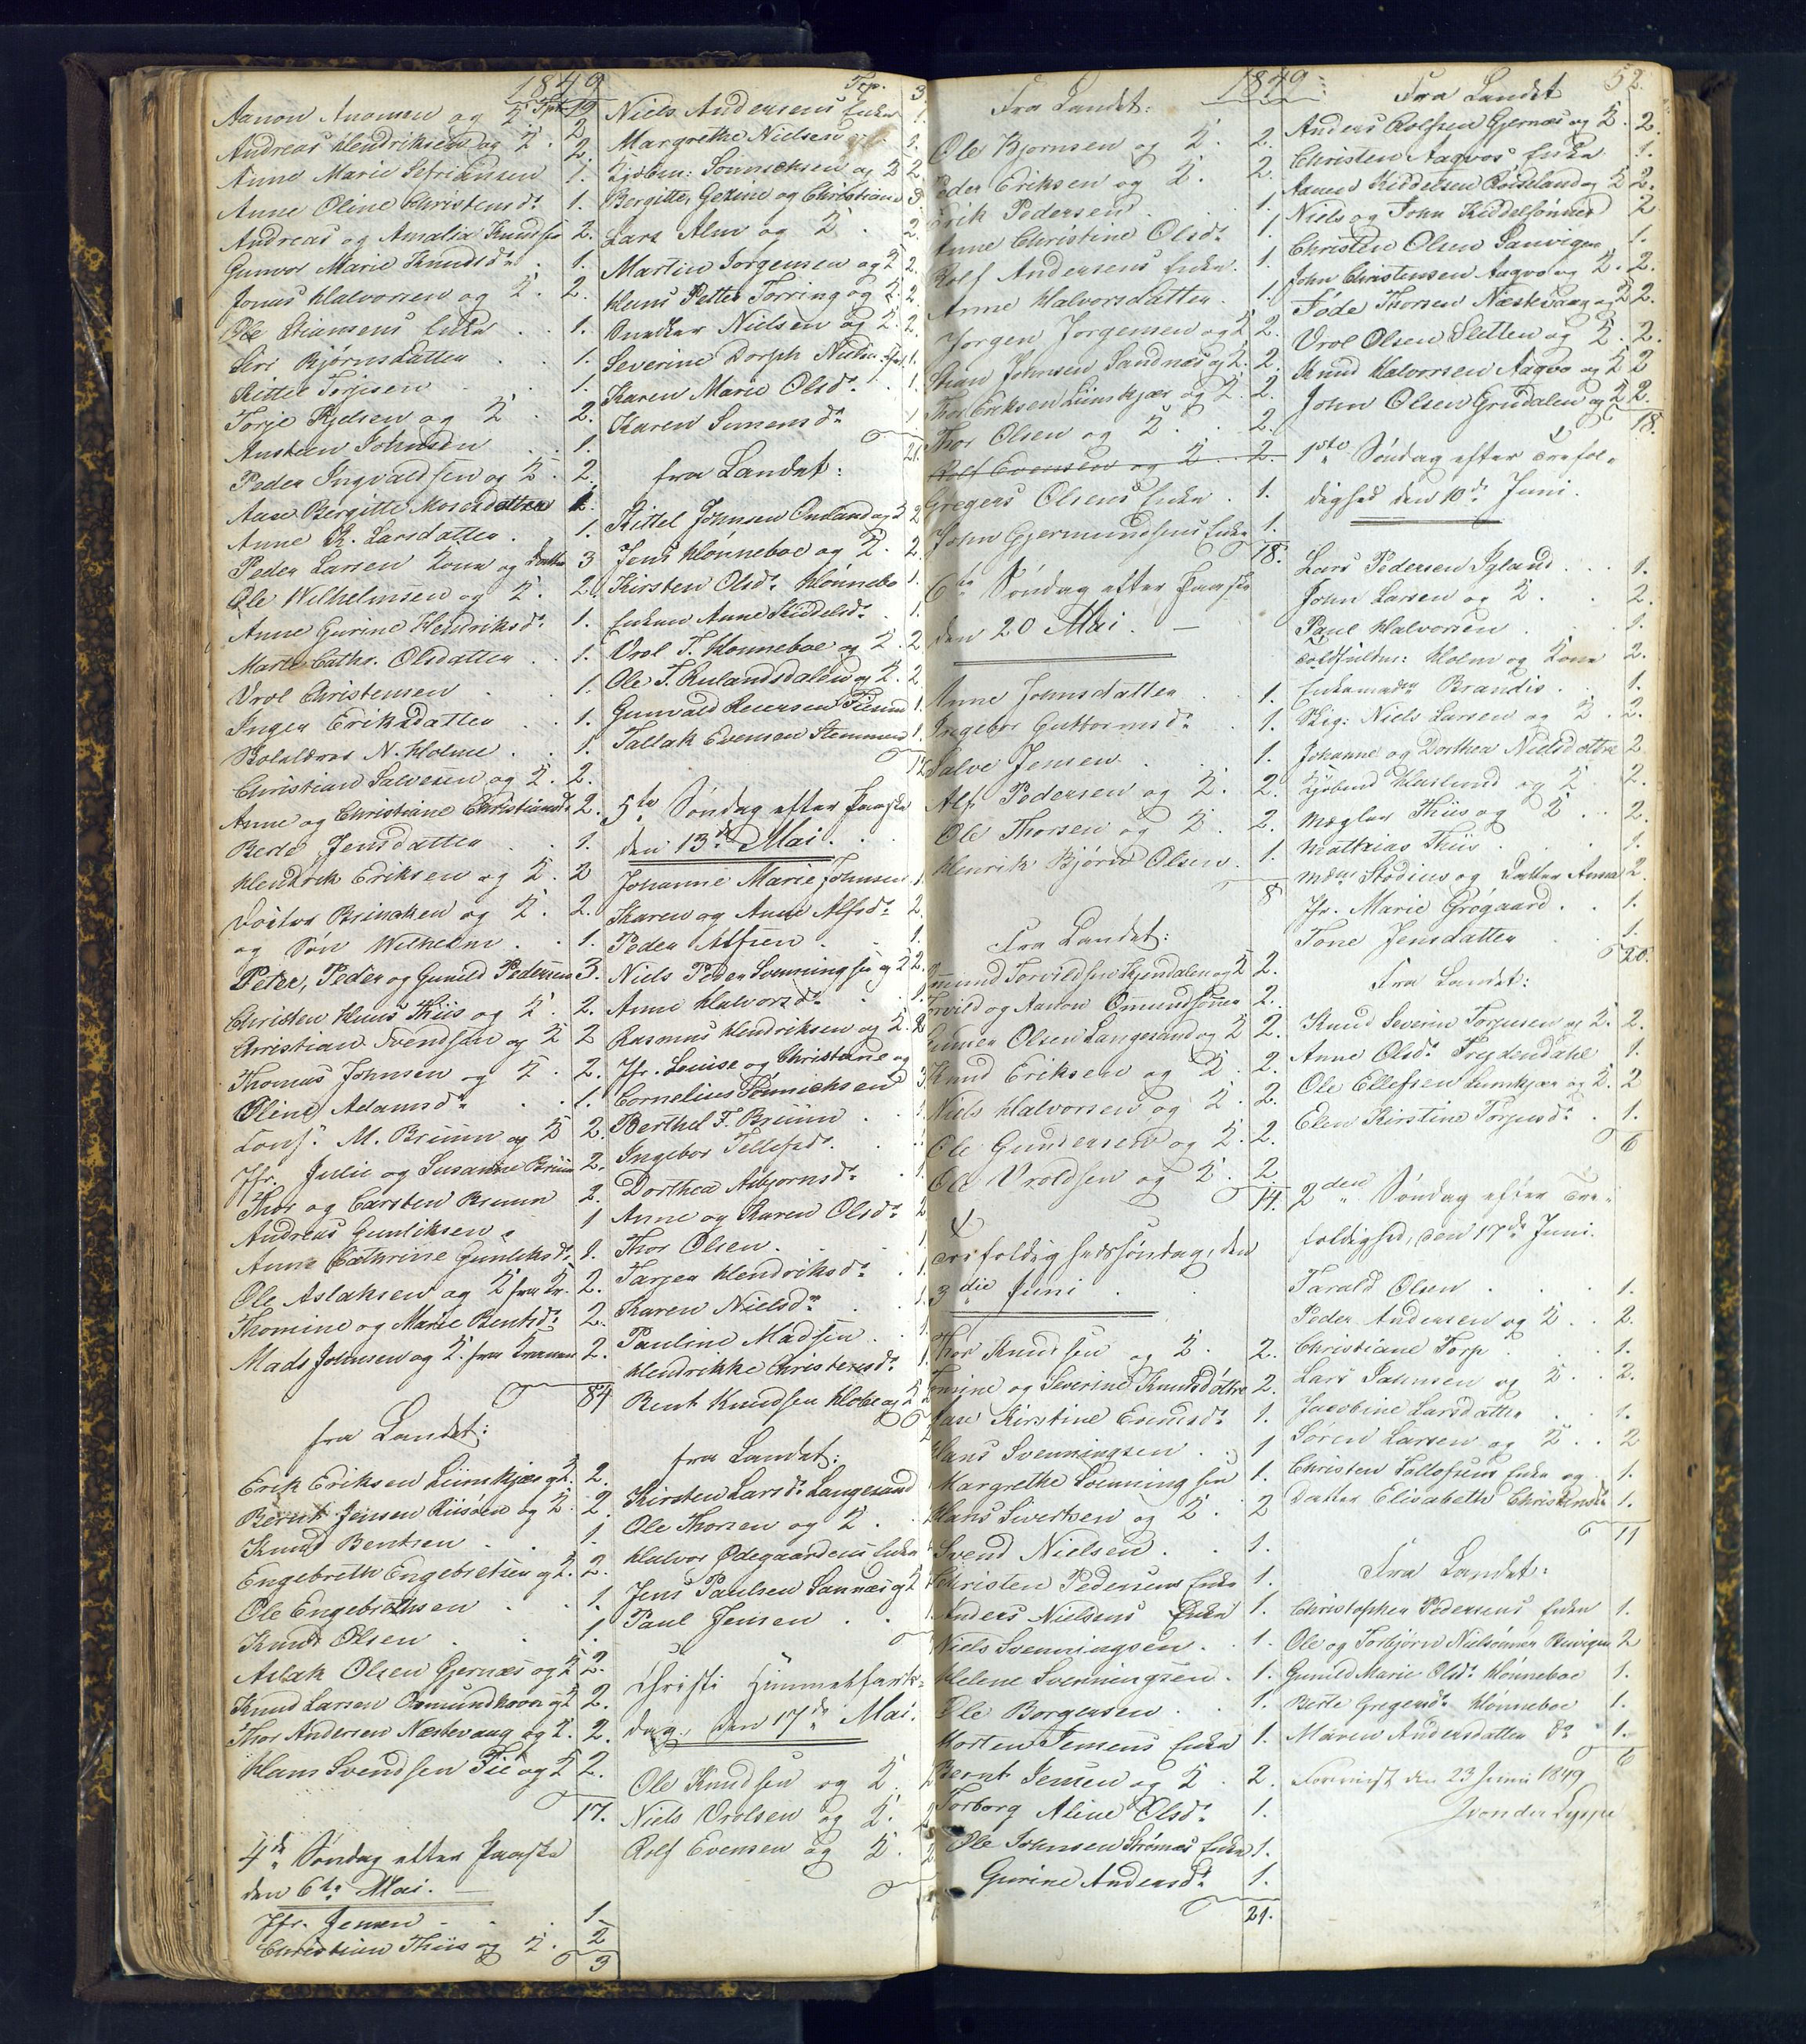 1849
Tsp. 19
Aanon Anonsen og K.
Andreas Hendriksen og K. 2.
Anne Marie Stiansen 1.
Anne Oline Christensd. 1.
Andreas og Amalia Knudsen 2.
Gunvor Marie Knudsd. 1.
Jonas Halvorsen og K. 2.
Ole Stiansens Enke 1.
Siri Bjørnsdatter 1.
Kittel Torjesen 1.
Torje Kjelsen og K. 2.
Austeen Johnsen 1.
Peder Ingvaldsen og K. 2.
Aase Bergitte Mosesdatter 1.
Anne K. Larsdatter 1.
Peder Larsen Kone og Datter 3
Ole Wilhelmsen og K. 2.
Anne Gurine Hendriksd. 1.
Marte Cathr. Olsdatter 1.
Vrol Christensen 1.
Inger Eriksdatter 1.
Skolelærer N. Holme 1.
Christian Salvesen og K. 2.
Anne og Christiane Christiansd. 2.
Berte Jensdatter 1.
Hendrik Eriksen og K. 2
Doctor Brinchen og K. 2.
og Søn Wilhelm 1.
Peter, Peder og Gunild Pedersen 3.
Christen Huus Thiis og K. 2.
Christian Svendsen og K 2
Thomas Johnsen og K. 2.
Oline Adamsd. 1.
Cons. M. Bruun og K 2.
Jfr. Julie og Susanne Bruun 2.
Thor og Carsten Bruun 2.
Andreas Gunliksen 1
Anne Cathrine Gunliksd. 1.
Ole Aslaksen og K fra Kr. 2.
Thomine og Marie Bentsd. 2.
Mads Johnsen og K. fra Tromøen 2.
84
fra Landet:
Erik Eriksen Liimkjær og K. 2.
Bernt Jensen Riisøen og K. 2.
Knud Bentsen 1.
Engebreth Engebretsen og K. 2.
Ole Engebrethsen 1.
Knud Olsen 1.
Aslak Olsen Gjernæs og K 2.
Knud Larsen Osmundhavn og K 2.
Thor Andersen Næstevaag og K. 2.
Hans Svendsen Fie og K 2.
17.
4de Søndag efter Paaske
den 6te Mai.
Jfr. Jensen 1.
Christian Thiis og K. 2
3
Trp. 3.
Niels Andersens Enke 1.
Margrethe Nielsen 1.
Kjøbm: Sønnichsen og K 2
Bergitte, Gesine og Christiane 3
Lars Alm og K 2.
Martin Jørgensen og K 2.
Hans Petter Torring og K. 2.
Anders Nielsen og K. 2.
Severine Dorph Nielsen 1.
Karen Marie Olsd. 1.
Karen Simensd. 1
21.
fra Landet:
Kittel Johnsen Omland og K 2
Jens Hønneboe og K. 2.
Kirsten Olsd. Hønnebo 1.
Enken Anne Kiddelsd. 1.
Vrol T. Hønneboe og K. 2
Ole T. Rulandsdalen og K. 2
Gunvald Reiersen Fiesund 1.
Tallak Evensen Stemmen 1.
12
5te Søndag efter Paaske
den 13de Mai.
Johanne Marie Johnsen 1
Karen og Anne Alfsd. 2.
Peder Alfsen 1.
Niels Peder Svenningsen og K 2.
Anne Halvorsd. 1.
Rasmus Hendriksen og K. 2
Jfr. Louise og Christiane og
Cornelius Sønnichsen 3
Berthel F. Bruun 1
Ingebor Tellefsd. 1.
Dorthea Asbjørnsd. 1.
Anne og Karen Olsd. 2
Thor Olsen 1
Tarjer Hendriksd. 1
Karen Nielsd. 1.
Pauline Madsen 1.
Hendrikke Christensd. 1.
Bent Knudsen Holte og K 2
fra Landet:
Kirsten Larsd. Langesand
Ole Thorsen og K
Halvor Ødegaardens Enke
Jens Paulsen Sannæs og K
Paul Jensen
Christi Himmelfarts-
dag, den 17de Mai.
Ole Knudsen og K. 2
Niels Vrolsen og K. 2
Rolf Evensen og K. 2
1849.
Fra Landet:
Ole Bjørnsen og K. 2.
Peder Eriksen og K. 2.
Erik Pedersen 1.
Anne Christine Olsd. 1.
Rolf Andersens Enke 1.
Anne Halvorsdatter 1.
Jørgen Jørgensen og K 2.
Stian Johnsen Sandnæs og K. 2.
Thor Eriksen Liimkjær og K. 2.
Thor Olsen og K. 2.
Rolf Evensen og K. 2.
Gregers Olsens Enke 1.
John Gjermundsens Enke 1.
18.
6te Søndag efter Paaske
den 20 Mai.
Anne Johnsdatter 1.
Ingebor Guttormsd. 1.
Salve Jensen 1.
Alf Pedersen og K. 2.
Ole Thorsen og K. 2.
Henrik Bjørn Olsen 1.
8
Fra Landet:
Omund Torvildsen Kjendalen og K 2.
Torvild og Aanon Omundsønner 2.
Gunder Olsen Langesand og K 2.
Knud Eriksen og K. 2.
Niels Halvorsen og K. 2.
Ole Gundersen og K. 2.
Ole Vroldsen og K. 2
14.
Trefoldighedssøndag, den
3die Juni
Thor Knudsen og K. 2.
Tomine og Severine Knudsdøttre 2.
Aase Kirstine Evensd. 1.
Hans Svenningsen 1
Margrethe Svenningsen 1.
Hans Sivertsen og K. 2
Svend Nielsen 1.
Christen Pedersens Enke 1.
Anders Nielsens Enke 1.
Niels Svenningsen 1.
Helene Svenningsen 1.
Ole Børgesen 1.
Morten Jensens Enke 1.
Bernt Jensen og K. 2.
Torborg Aline Olsd. 1.
Ole Johnsen Strømnæs Enke 1.
Gurine Andersd. 1.
21.
52.
Fra Landet
Anders Rolfsen Gjernæs og K. 2.
Christen Aagvos Enke 1.
Aanon Kiddelsen Roiseland og K 2.
Niels og John Kiddelsønner 2
Christen Olsen Sanvigen 1.
John Christensen Aagvo og K. 2.
Føde Thorsen Næstevaag og K 2.
Vrol Olsen Sletten og K. 2.
Knud Halvorsen Aagvo og K 2
John Olsen Grudalen og K 2.
18.
1ste Søndag efter Trefol-
dighed den 10de Juni.
Lars Pedersen Igland 1.
John Larsen og K. 2.
Paul Halvorsen 1.
Toldfuldm: Holm og Kone 2.
Enkemadm Brandis 1.
Skip: Niels Larsen og K. 2.
Johanne og Dorthea Nielsdøttre 2
Kjøbmd Haslund og K 2.
Mægler Thiis og K 2.
Matthias Thiis 1.
Mdm Stodius og Datter Anna 2.
Jfr. Marie Grøgaard 1.
Tone Jensdatter 1.
20.
Fra Landet:
Knud Severin Torjusen og K. 2.
Anne Olsd. Frydendahl 1.
Ole Ellefsen Liimkjær og K. 2
Elen Kirstine Torjusd. 1.
6
2den Søndag efter Tre-
foldighed, den 17de Juni.
Tarald Olsen 1.
Peder Andersen og K 2.
Christiane Torp 1.
Lars Salmsen og K 2.
Jacobine Larsdatter 1.
Søren Larsen og K 2
Christen Tallofsens Enke og 1.
Datter Elisabeth Christensd. 1.
11
Fra Landet:
Christopher Pedersens Enke 1.
Ole og Torbjørn Nielsønner 2
Gunild Marie Olsd. Hønneboe 1.
Berte Gregersd. Hønneboe 1.
Maren Andersdatter do 1.
6
den 23 Juni 1849
von der Lippe